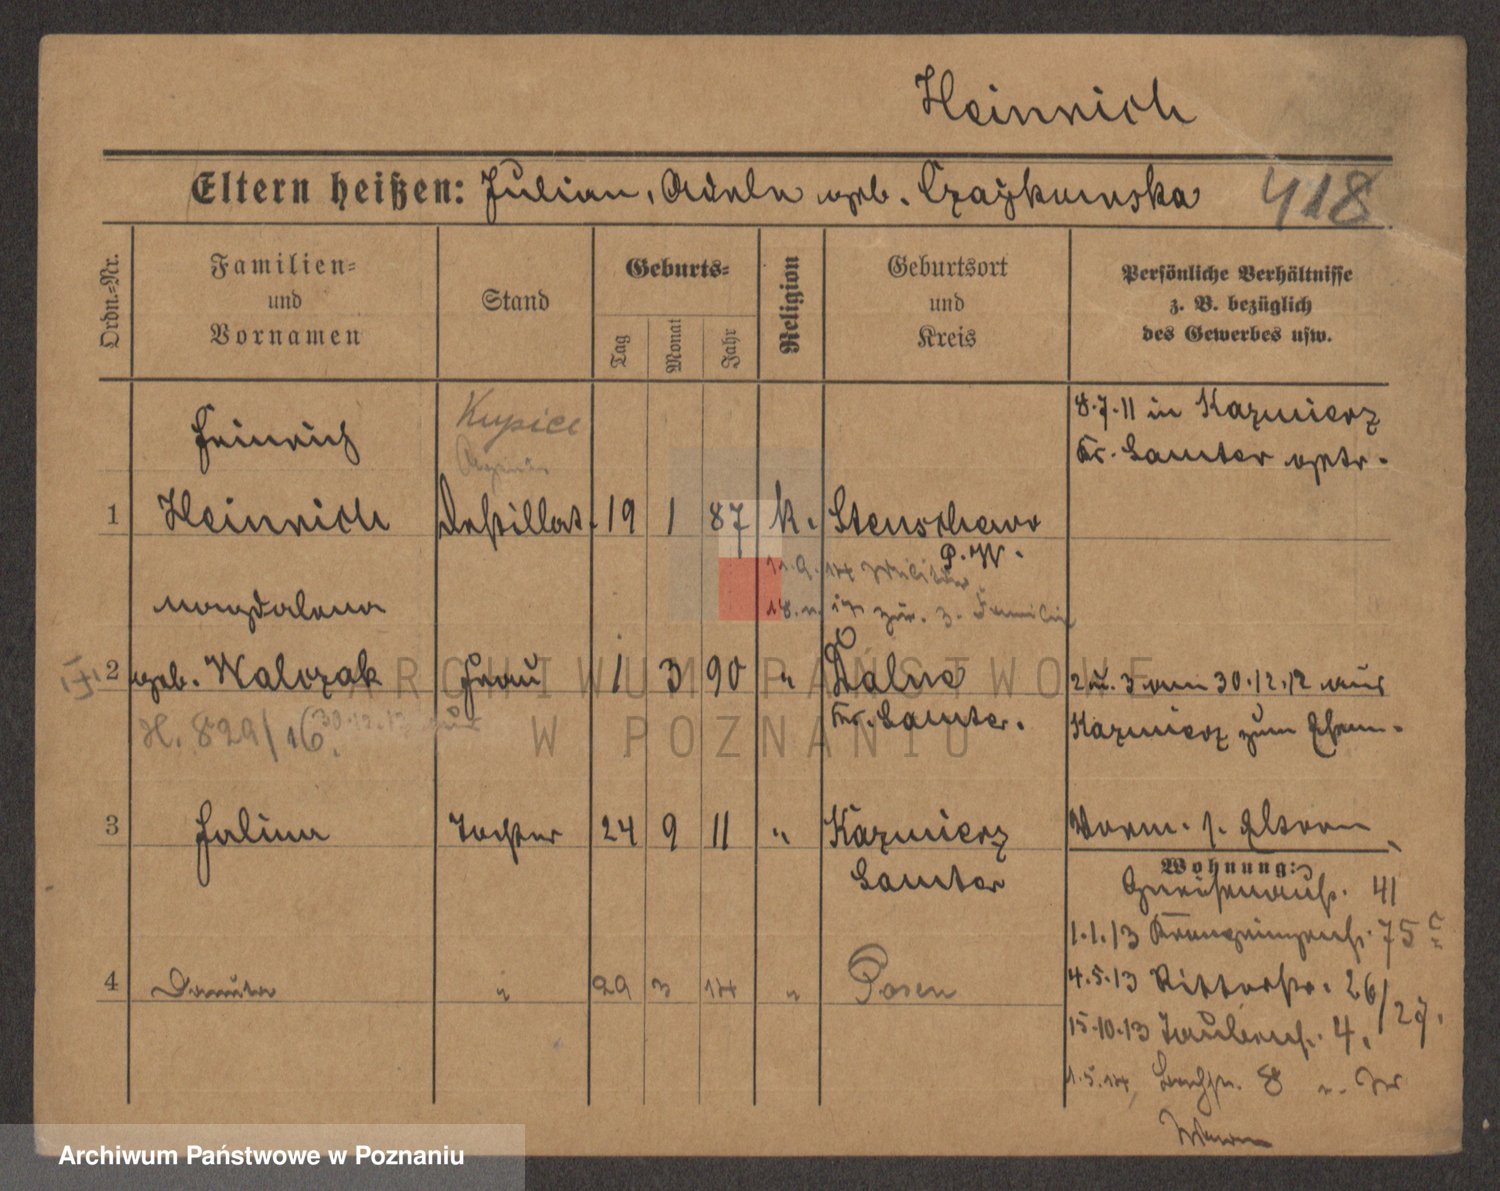 Heinrich
Eltern heißen: Julian, Adele geb. Czaykowska 418
Ordn.=Nr.
Familien=
und
Vornamen
Stand
Geburts=
Tag
Monat
Jahr
Religion
Geburtsort
und
Kreis
Persönliche Verhältnisse
z. B. bezüglich
des Gewerbes usw.
Heinrich Kupiec 8.7.11 in Kazmierz
Kr. Samter getr.
1 Heinrich Destillat. 19 1 87 k. Stenschewo
P. W.
11.9.14 Militär
zur. z. Familie
Magdalena
2 geb. Walczak Frau 1 3 90 " Dalne 2 u. 3 am 30.12.12 aus
Kr. Samter. Kazmierz zum Ehem.
H. 829/16. 30.12.12 aus
3 Halina Tochter 24 9 11 " Kazmierz Vorm. s. Eltern
Samter
Wohnung:
Gneisenaustr. 41
1.1.13 Kronprinzenstr. 75
4 Danuta " 29 3 14 " Posen
4.5.13 Ritterstr. 26/27.
15.10.13 Taubenstr. 4.
1.5.14, 8
ARCHIWUM PAŃSTWOWE
W POZNANIU
Archiwum Państwowe w Poznaniu